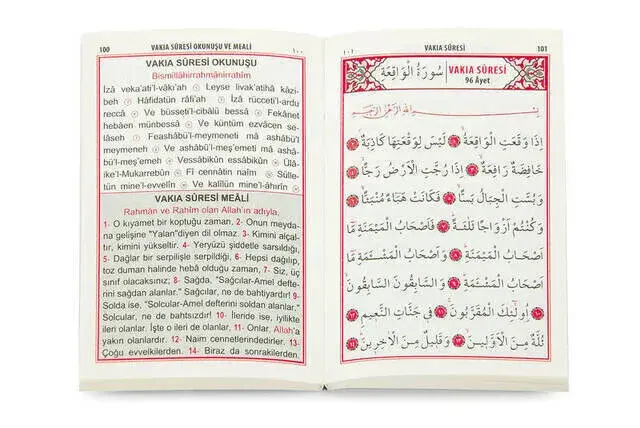 100 VAKIA SÛRESİ OKUNUŞU VE MEALİ ١٠٠
VAKIA SÛRESİ OKUNUŞU
Bismillâhirrahmânirrahîm
İzâ veka'ati'l-vâkı'ah Leyse livak'atihâ kâzi-
beh Hâfidatün râfi'ah İzâ rücceti'l-ardu
reccâ Ve büsseti'l-cibâlü bessâ Fekânet
hebâen münbessâ Ve küntüm ezvâcen se-
lâseh Feashâbü'l-meymeneti mâ ashâbü'l-
meymeneh Ve ashâbü'l-meş'emeti mâ ashâ-
bü'l-meş'emeh Vessâbikûn essâbikûn Ülâ-
ike'l-Mukarrebûn Fî cennâtin naîm Sülle-
tün mine'l-evvelîn Ve kalîlün mine'l-âhırîn
VAKIA SÛRESİ MEÂLİ
Rahmân ve Rahîm olan Allah'ın adıyla.
1- O kıyamet bir koptuğu zaman, 2- Onun meyda-
na gelişine "Yalan"diyen dil olmaz. 3- Kimini alçal-
tır, kimini yükseltir. 4- Yeryüzü şiddetle sarsıldığı,
5- Dağlar bir serpilişle serpildiği, 6- Hepsi dağılıp,
toz duman halinde hebâ olduğu zaman, 7- Siz, üç
sınıf olacaksınız; 8- Sağda, "Sağcılar-Amel defte-
rini sağdan alanlar." Sağcılar, ne de bahtiyardır! 9-
Solda ise, "Solcular-Amel defterini soldan alanlar."
Solcular, ne de bahtsızdır! 10- İleride ise, iyilikte
ileri olanlar. İşte o ileri de olanlar, 11- Onlar, Allah'a
yakın olanlardır. 12- Naim cennetlerindedirler. 13-
Çoğu evvelkilerden. 14- Biraz da sonrakilerden.
١٠١ VAKIA SÛRESİ 101
سُورَةُ الْوَاقِعَةِ VAKIA SÛRESİ
96 Âyet
بِسْمِ اللهِ الرَّحْمٰنِ الرَّحِيمِ
اِذَا وَقَعَتِ الْوَاقِعَةُ ﴿١﴾ لَيْسَ لِوَقْعَتِهَا كَاذِبَةٌ ﴿٢﴾
خَافِضَةٌ رَافِعَةٌ ﴿٣﴾ اِذَا رُجَّتِ الْاَرْضُ رَجًّا ﴿٤﴾
وَبُسَّتِ الْجِبَالُ بَسًّا ﴿٥﴾ فَكَانَتْ هَبَاءً مُنْبَثًّا ﴿٦﴾
وَكُنْتُمْ اَزْوَاجًا ثَلٰثَةً ﴿٧﴾ فَاَصْحَابُ الْمَيْمَنَةِ مَا
اَصْحَابُ الْمَيْمَنَةِ ﴿٨﴾ وَاَصْحَابُ الْمَشْـَٔمَةِ مَا
اَصْحَابُ الْمَشْـَٔمَةِ ﴿٩﴾ وَالسَّابِقُونَ السَّابِقُونَ
﴿١٠﴾ اُولٰئِكَ الْمُقَرَّبُونَ ﴿١١﴾ فِي جَنَّاتِ النَّعِيمِ ﴿١٢﴾
ثُلَّةٌ مِنَ الْاَوَّلِينَ ﴿١٣﴾ وَقَلِيلٌ مِنَ الْاٰخِرِينَ ﴿١٤﴾